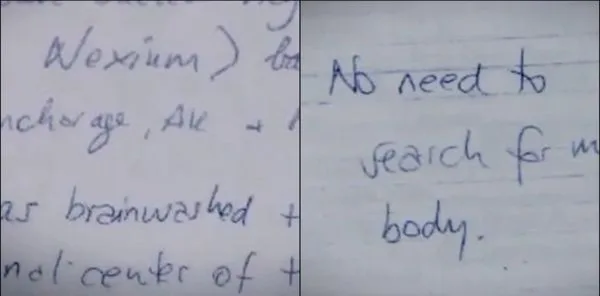 Nexium) ba
nchorage, AK + 
as brainwashed +
nal center of t
No need to
search for m
body.